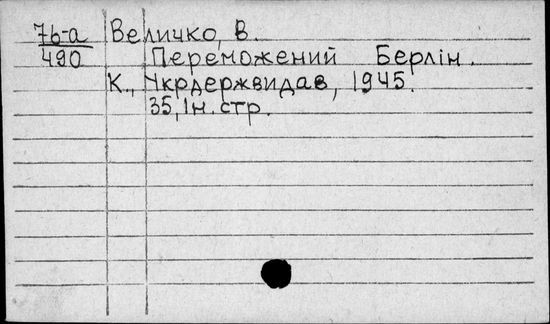 7б-а Величко, В.
490 Переможений Берлін.
К., Укрдержвидав, 1945.
35, 1н. стр.